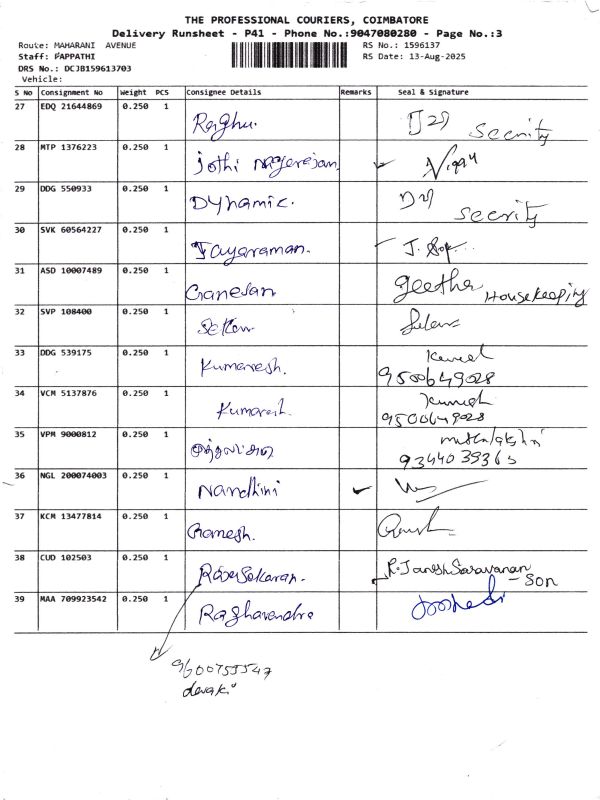 THE PROFESSIONAL COURIERS, COIMBATORE
Delivery Runsheet - P41 - Phone No.:9047080280 - Page No.:3
Route: MAHARANI AVENUE RS No.: 1596137
Staff: PAPPATHI RS Date: 13-Aug-2025
DRS No.: DCJB159613703
Vehicle:
S No Consignment No Weight PCS Consignee Details Remarks Seal & Signature
27 EDQ 21644869 0.250 1 Raghu. D29 Secrity
28 MTP 1376223 0.250 1 Jothi Nagarajan
29 DDG 550933 0.250 1 Dynamic. D29 Secrity
30 SVK 60564227 0.250 1 Jayaraman.
31 ASD 10007489 0.250 1 Ganesan geetha Housekeeping
32 SVP 108400 0.250 1
33 DDG 539175 0.250 1 Kumaresh.
9500649028
34 VCM 5137876 0.250 1
9500649028
35 VPM 9000812 0.250 1
9344039365
36 NGL 200074003 0.250 1 Nandhini
37 KCM 13477814 0.250 1 Ganesh.
38 CUD 102503 0.250 1 Rajasekaran. R. Janesh Saravanan
- Son
39 MAA 709923542 0.250 1 Raghavendra
9600755547
devaki